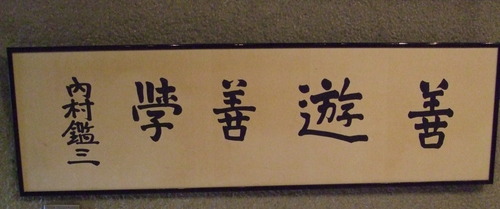 善遊善學
內村鑑三